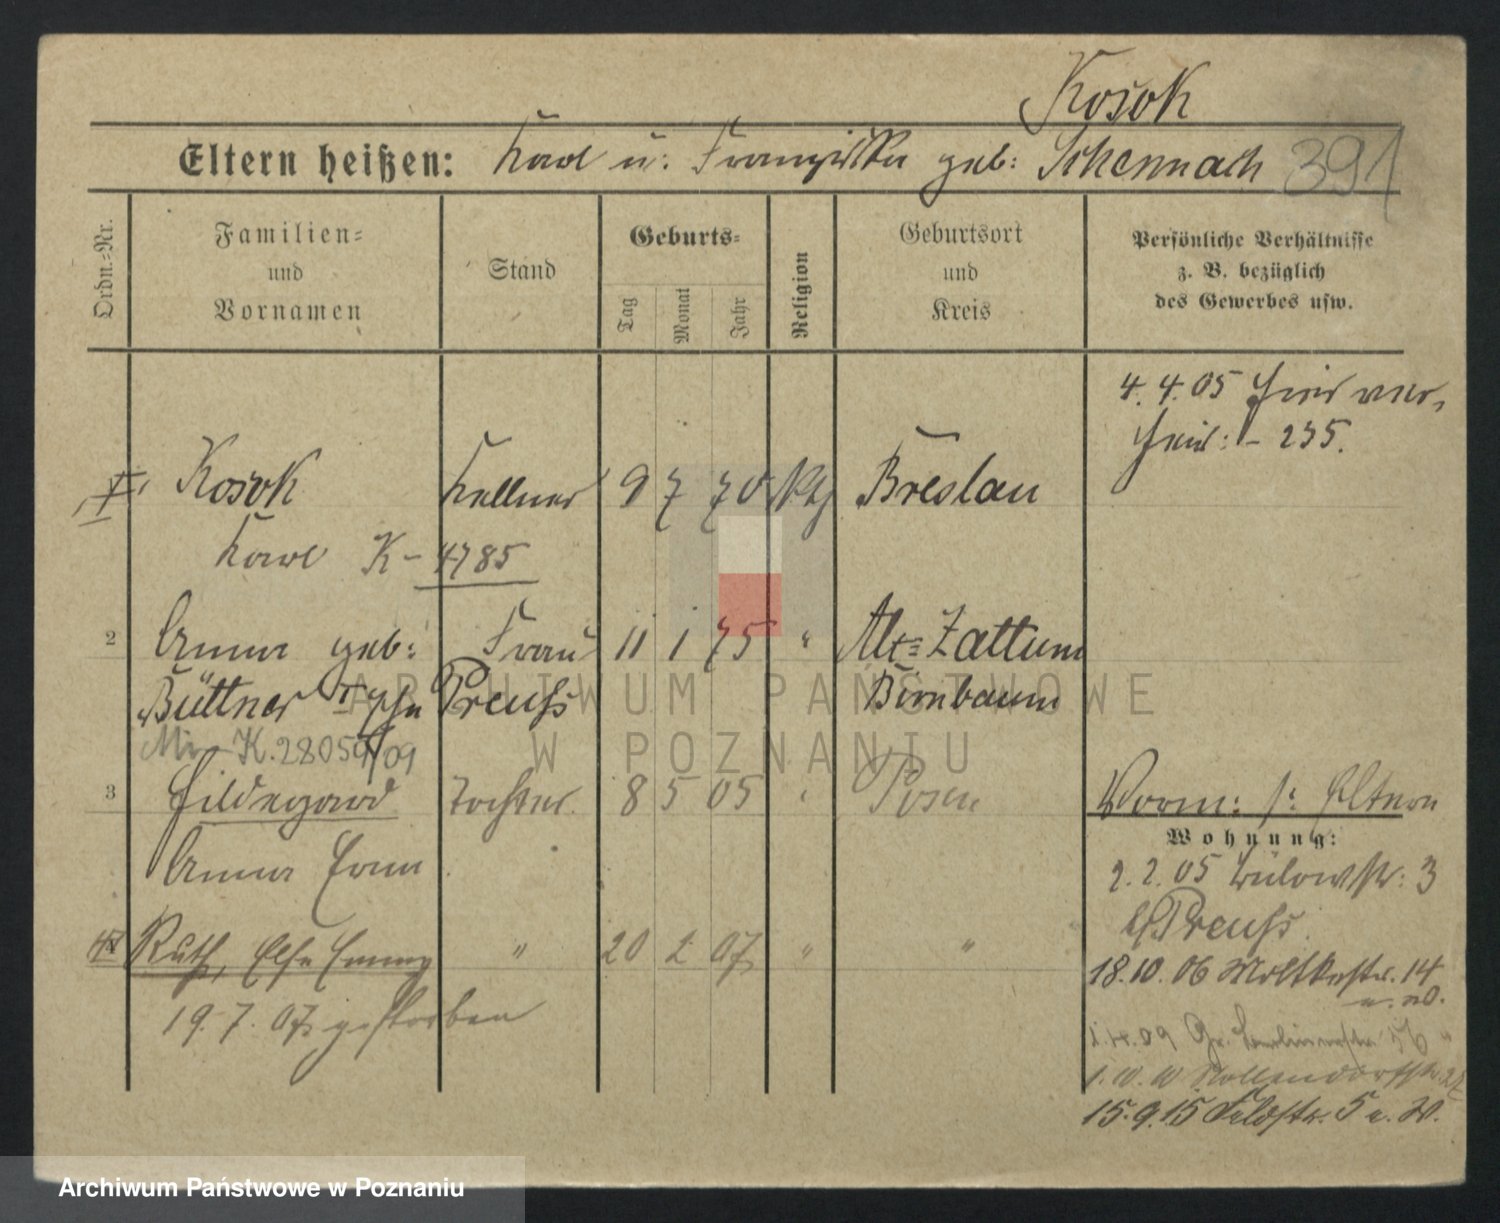 Kosok
Eltern heißen: Karl u. Franziska geb: Schennach 391
Ordn.=Nr.
Familien=
und
Vornamen
Stand
Geburts=
Tag
Monat
Jahr
Religion
Geburtsort
und
Kreis
Persönliche Verhältnisse
z. B. bezüglich
des Gewerbes usw.
4. 4. 05 hier ver-
heir: 235.
Kosok Kellner 9 7 70 kth Breslau
Karl K-4785
2 Anna geb: Frau 11 1 75 " Alt=Zattum
Büttner Preuß Birnbaum
K. 28059/09
3 Hildegard Tochter. 8 5 05 " Posen Vorm: s: Eltern
Anna Erna
Wohnung:
2. 2. 05 Bülowstr: 3
b/Preuß.
4 Ruth, Else Emmy " 20 2 07 " "
19. 7. 07 gestorben
18. 10. 06 Moltkestr. 14
1. 4. 09 Gr. Berlinerstr. 56
1. 10. 10 Nollendorfstr. 27
15. 9. 15 Feldstr. 5 a. W.
ARCHIWUM PAŃSTWOWE
W POZNANIU
Archiwum Państwowe w Poznaniu